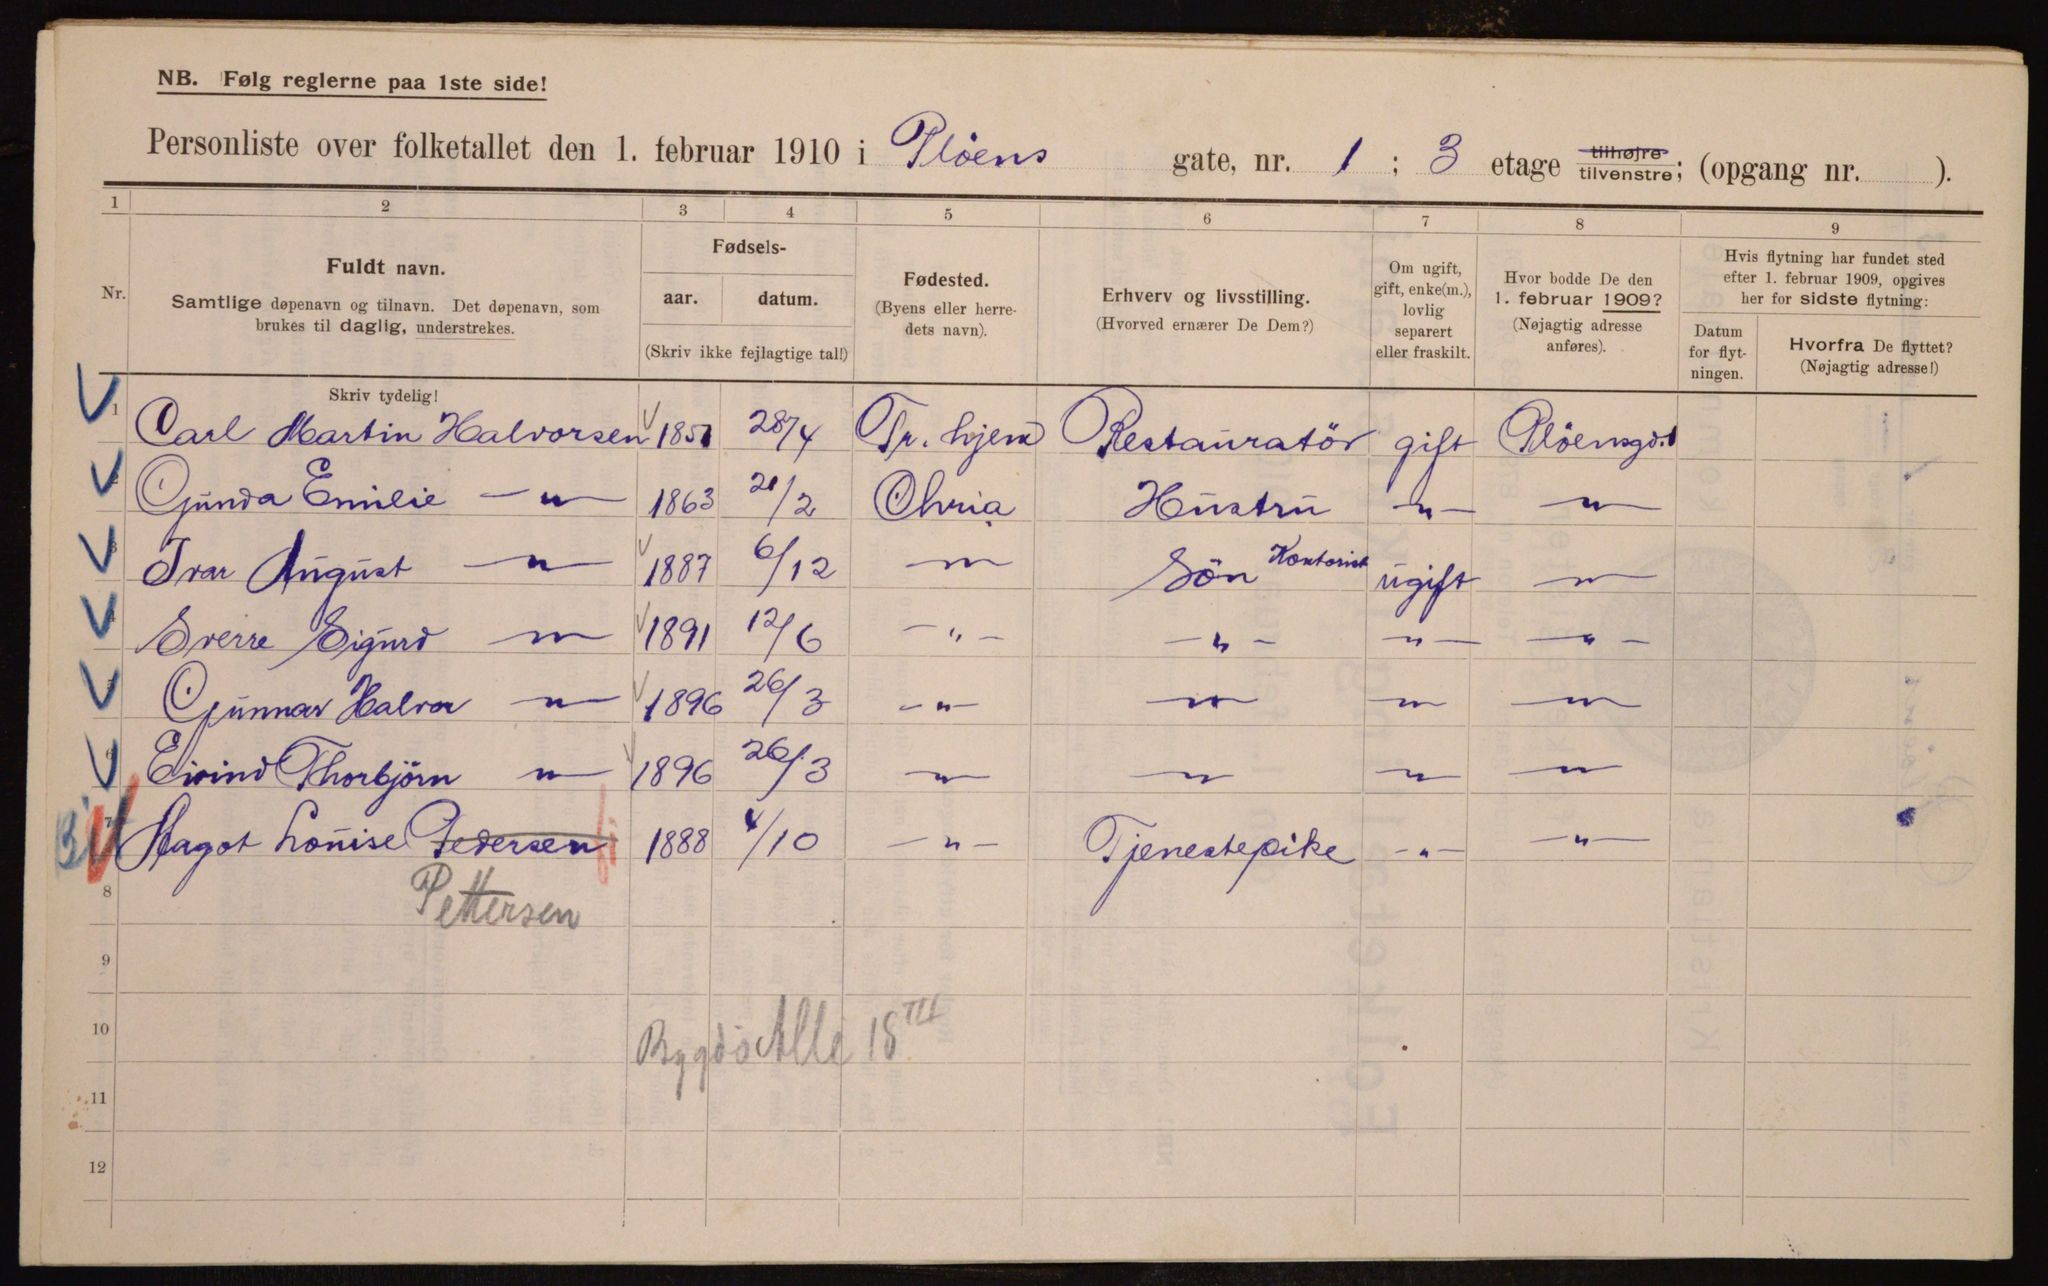 NB. Følg reglerne paa 1ste side!
Personliste over folketallet den 1. februar 1910 i Plöens gate, nr. 1 ; 3 etage tilhøjre tilvenstre; (opgang nr. ).
1 2 3 4 5 6 7 8 9
Nr.
Fuldt navn.
Samtlige døpenavn og tilnavn. Det døpenavn, som
brukes til daglig, understrekes.
Fødsels-
aar. datum.
(Skriv ikke fejlagtige tal!)
Fødested.
(Byens eller herre-
dets navn).
Erhverv og livsstilling.
(Hvorved ernærer De Dem?)
Om ugift,
gift, enke(m.),
lovlig
separert
eller fraskilt.
Hvor bodde De den
1. februar 1909?
(Nøjagtig adresse
anføres).
Hvis flytning har fundet sted
efter 1. februar 1909, opgives
her for sidste flytning:
Datum
for flyt-
ningen.
Hvorfra De flyttet?
(Nøjagtig adresse!)
Skriv tydelig!
1 Carl Martin Halvorsen 1851 28/4 Tr. hjem Restauratör gift Plöensgd. 1
2 Gunda Emilie — " — 1863 /2 Chria Hustru — " — — " —
3 Ivar August — " — 1887 6/12 — " — Sön Kontorist ugift — " —
4 Sverre Sigurd — " — 1891 12/6 — " — — " — — " — — " —
5 Gunnar Halvor — " — 1896 26/3 — " — — " — — " — — " —
6 Eivind Thorbjörn — " — 1896 26/3 — " — — " — — " — — " —
7 Magot Louise Pedersen 1888 4/10 — " — Tjenestepike — " — — " —
8 Pettersen
9
10 Bygdö Allé 18 III
11
12